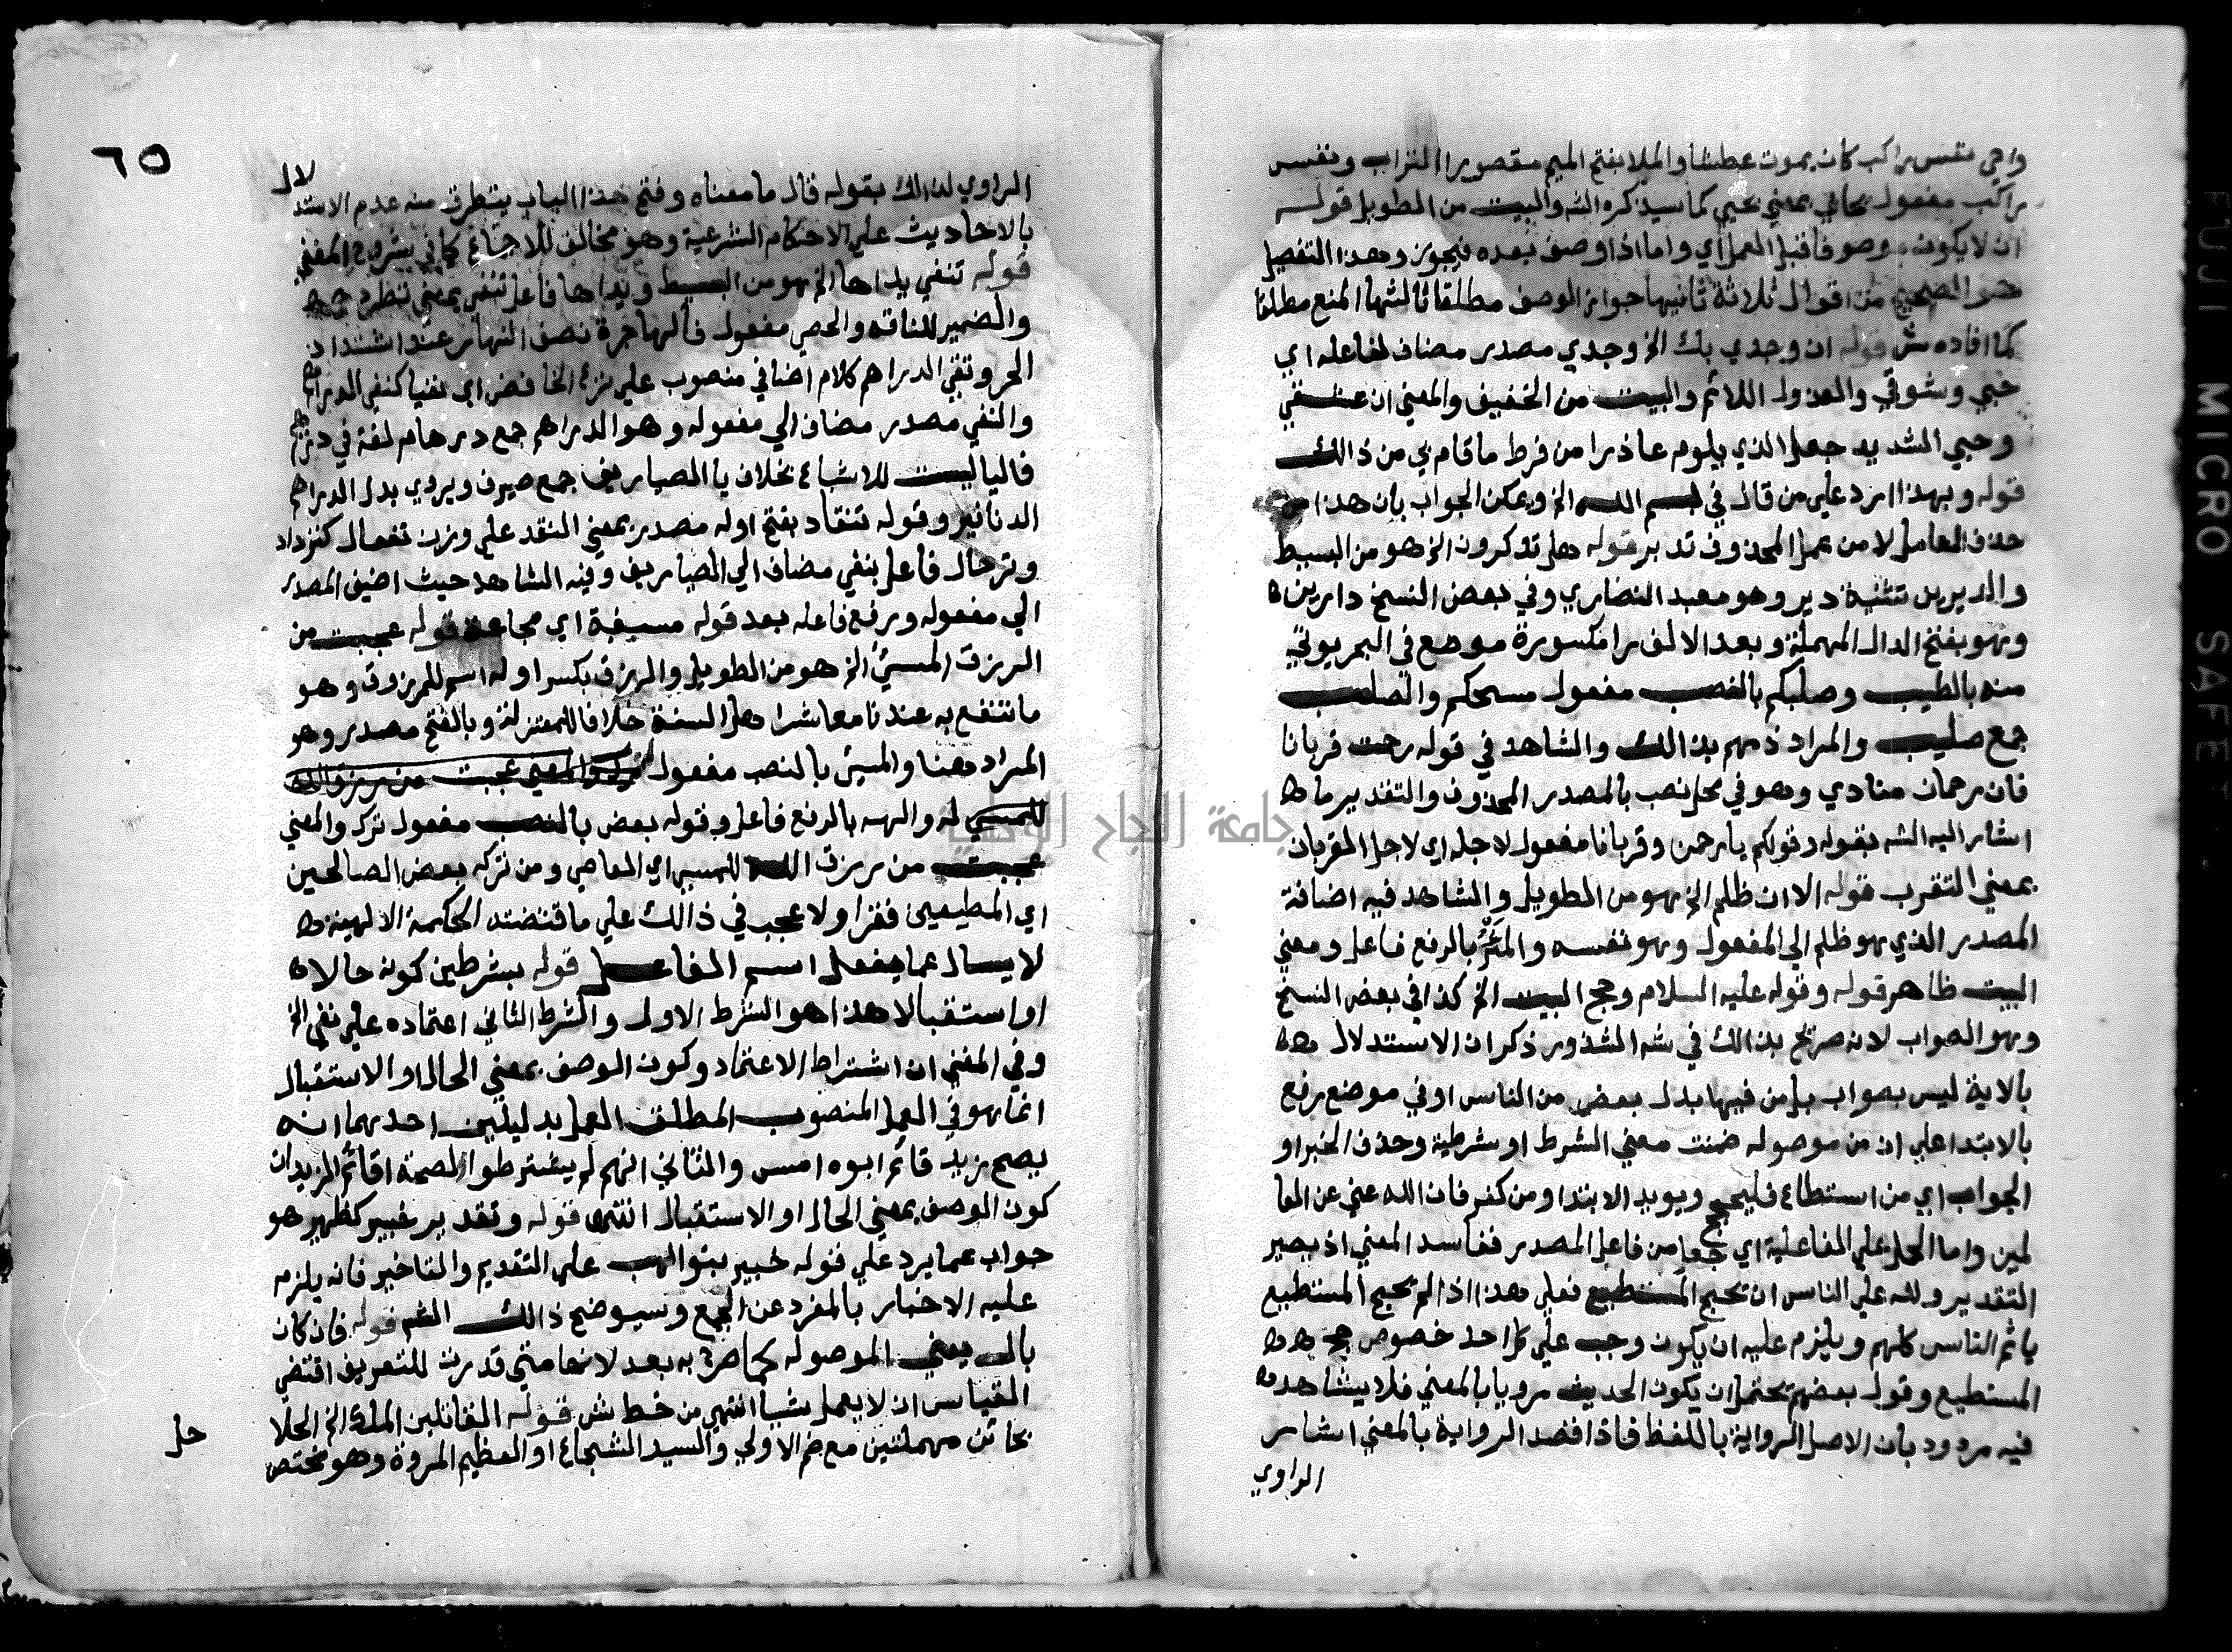 واحي نفس راكب كان يموت عطشا والملا بفتح الميم مقصورا التراب ونفس
راكب مفعول يحايي بمعني يحيي كما سيذكره الشه والبيت من الطويل قوله
ان لا يكون موصوفا قبل العمل اي واما اذا وصف بعده فيجوز وهذا التفصيل
هو الصحيح من اقوال ثلاثة ثانيها جواز الوصف مطلقا ثالثها المنع مطلقا
كما افاده ش قوله ان وجدي بك الخ وجدي مصدر مضاف لفاعله اي
حبي وشوقي والعذول اللائم والبيت من الخفيف والمعني ان عشقي
وحبي الشديد جعل الذي يلوم عاذرا من فرط ما قام بي من ذالك
قوله وبهذا رد علي من قال في بسم الله الخ ويمكن الجواب بان هذا من
حذف العامل لا من عمل المحذوف تدبر قوله هل تذكرون الخ هو من البسيط
والديرين تثنية دير وهو معبد النصاري وفي بعض النسخ دارين
وهو بفتح الدال المهملة وبعد الالف را مكسورة موضع في البحر يوتي
منه بالطيب وصلبكم بالنصب مفعول مسحكم والصلب
جمع صليب والمراد ذمهم بذالك والشاهد في قوله رحمت قربانا
فان رحمان منادي وهو في محل نصب بالمصدر المحذوف والتقدير ما
اشار اليه الشه بقوله وقولكم يا رحمن وقربانا مفعول لاجله اي لاجل القربان
بمعني التقرب قوله الا ان ظلم الخ هو من الطويل والشاهد فيه اضافة
المصدر الذي هو ظلم الي المفعول وهو نفسه والمرء بالرفع فاعل ومعني
البيت ظاهر قوله وقوله عليه السلام وحج البيت الخ كذا في بعض النسخ
وهو الصواب لانه صرح بذالك في شه الشذور ذكر ان الاستدلال
بالاية ليس بصواب بل من فيها بدل بعض من الناس او في موضع رفع
بالابتدا علي ان من موصوله ضمنت معني الشرط او شرطية وحذف الخبر او
الجواب اي من استطاع فليحج ويويد الابتدا ومن كفر فان الله غني عن العا
لمين واما الحمل علي الفاعلية اي جعل من فاعل المصدر ففاسد المعني اذ يصير
التقدير ولله علي الناس ان يحج المستطيع فعلي هذا اذا لم يحج المستطيع
ياثم الناس كلهم ويلزم عليه ان يكون وجب علي كل احد خصوص حج
المستطيع وقول بعضهم يحتمل ان يكون الحديث مرويا بالمعني فلا يشاهد
فيه مردود بان الاصل الرواية باللفظ فاذا قصد الرواية بالمعني اشار
الراوي
٦٥
الراوي لذالك بقوله قال ما معناه وفتح هذا الباب يتطرق منه عدم الاستد
لال
بالاحاديث علي الاحكام الشرعية وهو مخالف للاجماع كما في شروح المغني
قوله تنفي يداها الخ هو من البسيط ويداها فاعل تنفي بمعني تطرد
والضمير للناقه والحصي مفعول والهاجرة نصف النهار عند اشتداد
الحر ونفي الدراهم كلام اضافي منصوب علي نزع الخافض اي نفيا كنفي الدراهم
والنفي مصدر مضاف الي مفعوله وهو الدراهم جمع درهام لغة في درهم
فاليا ليست للاشباع بخلاف يا الصياريف جمع صيرف ويروي بدل الدراهم
الدنانير وقوله تنقاد بفتح اوله مصدر بمعني النقد علي وزن تفعال كتزداد
وترحال فاعل بنفي مضاف الي الصياريف وفيه الشاهد حيث اضيف المصدر
الي مفعوله ورفع فاعله بعد قوله مسبغبة اي مجاعة قوله عجبت من
الرزق المسئ الخ هو من الطويل والرزق بكسر اوله اسم للمرزوق وهو
ما ننتفع به عندنا معاشر اهل السنة خلافا للمعتزلة وبالفتح مصدر وهو
المراد هنا والمسئ بالنصب مفعول ترك والمعني عجبت من رزق الله
للمسي له والهه بالرفع فاعل وقوله بعض بالنصب مفعول ترك والمعني
عجبت من رزق الله للمسي اي العاصي ومن تركه بعض الصالحين
اي المطيعين فقرا ولا عجب في ذالك علي ما قتضته الحكمة الالهية
لا يسال عما يفعل اسم الفاعل قوله بشرطين كونه حالا
او استقبالا هذا هو الشرط الاول والشرط الثاني اعتماده علي نفي الخ
وفي المغني ان اشتراط الاعتماد وكون الوصف بمعني الحال او الاستقبال
انما هو في العمل المنصوب المطلق العمل بدليلين احدهما انه
يصح زيد قائم ابوه امس والثاني انهم لم يشترطوا لصحة اقائم الزيدان
كون الوصف بمعني الحال او الاستقبال انتهي قوله وتقدير خبير كظهير هو
جواب عما يرد علي قوله خبير بنو لهب علي التقديم والتاخير فانه يلزم
عليه الاخبار بالمفرد عن الجمع وسيوضح ذالك الشه قوله فان كان
بال يعني الموصوله كما صرح به بعد لانها متي قدرت للتعريف اقتضي
القياس ان لا يعمل شيا انتهي من خط ش قوله القاتلين الملك الخ الحلا
بحائين مهملتين مع ضم الاولي والسيد الشجاع او العظيم المروة وهو مختص
حل
جامعة النجاح الوطنية
FUJI MICRO SAFE